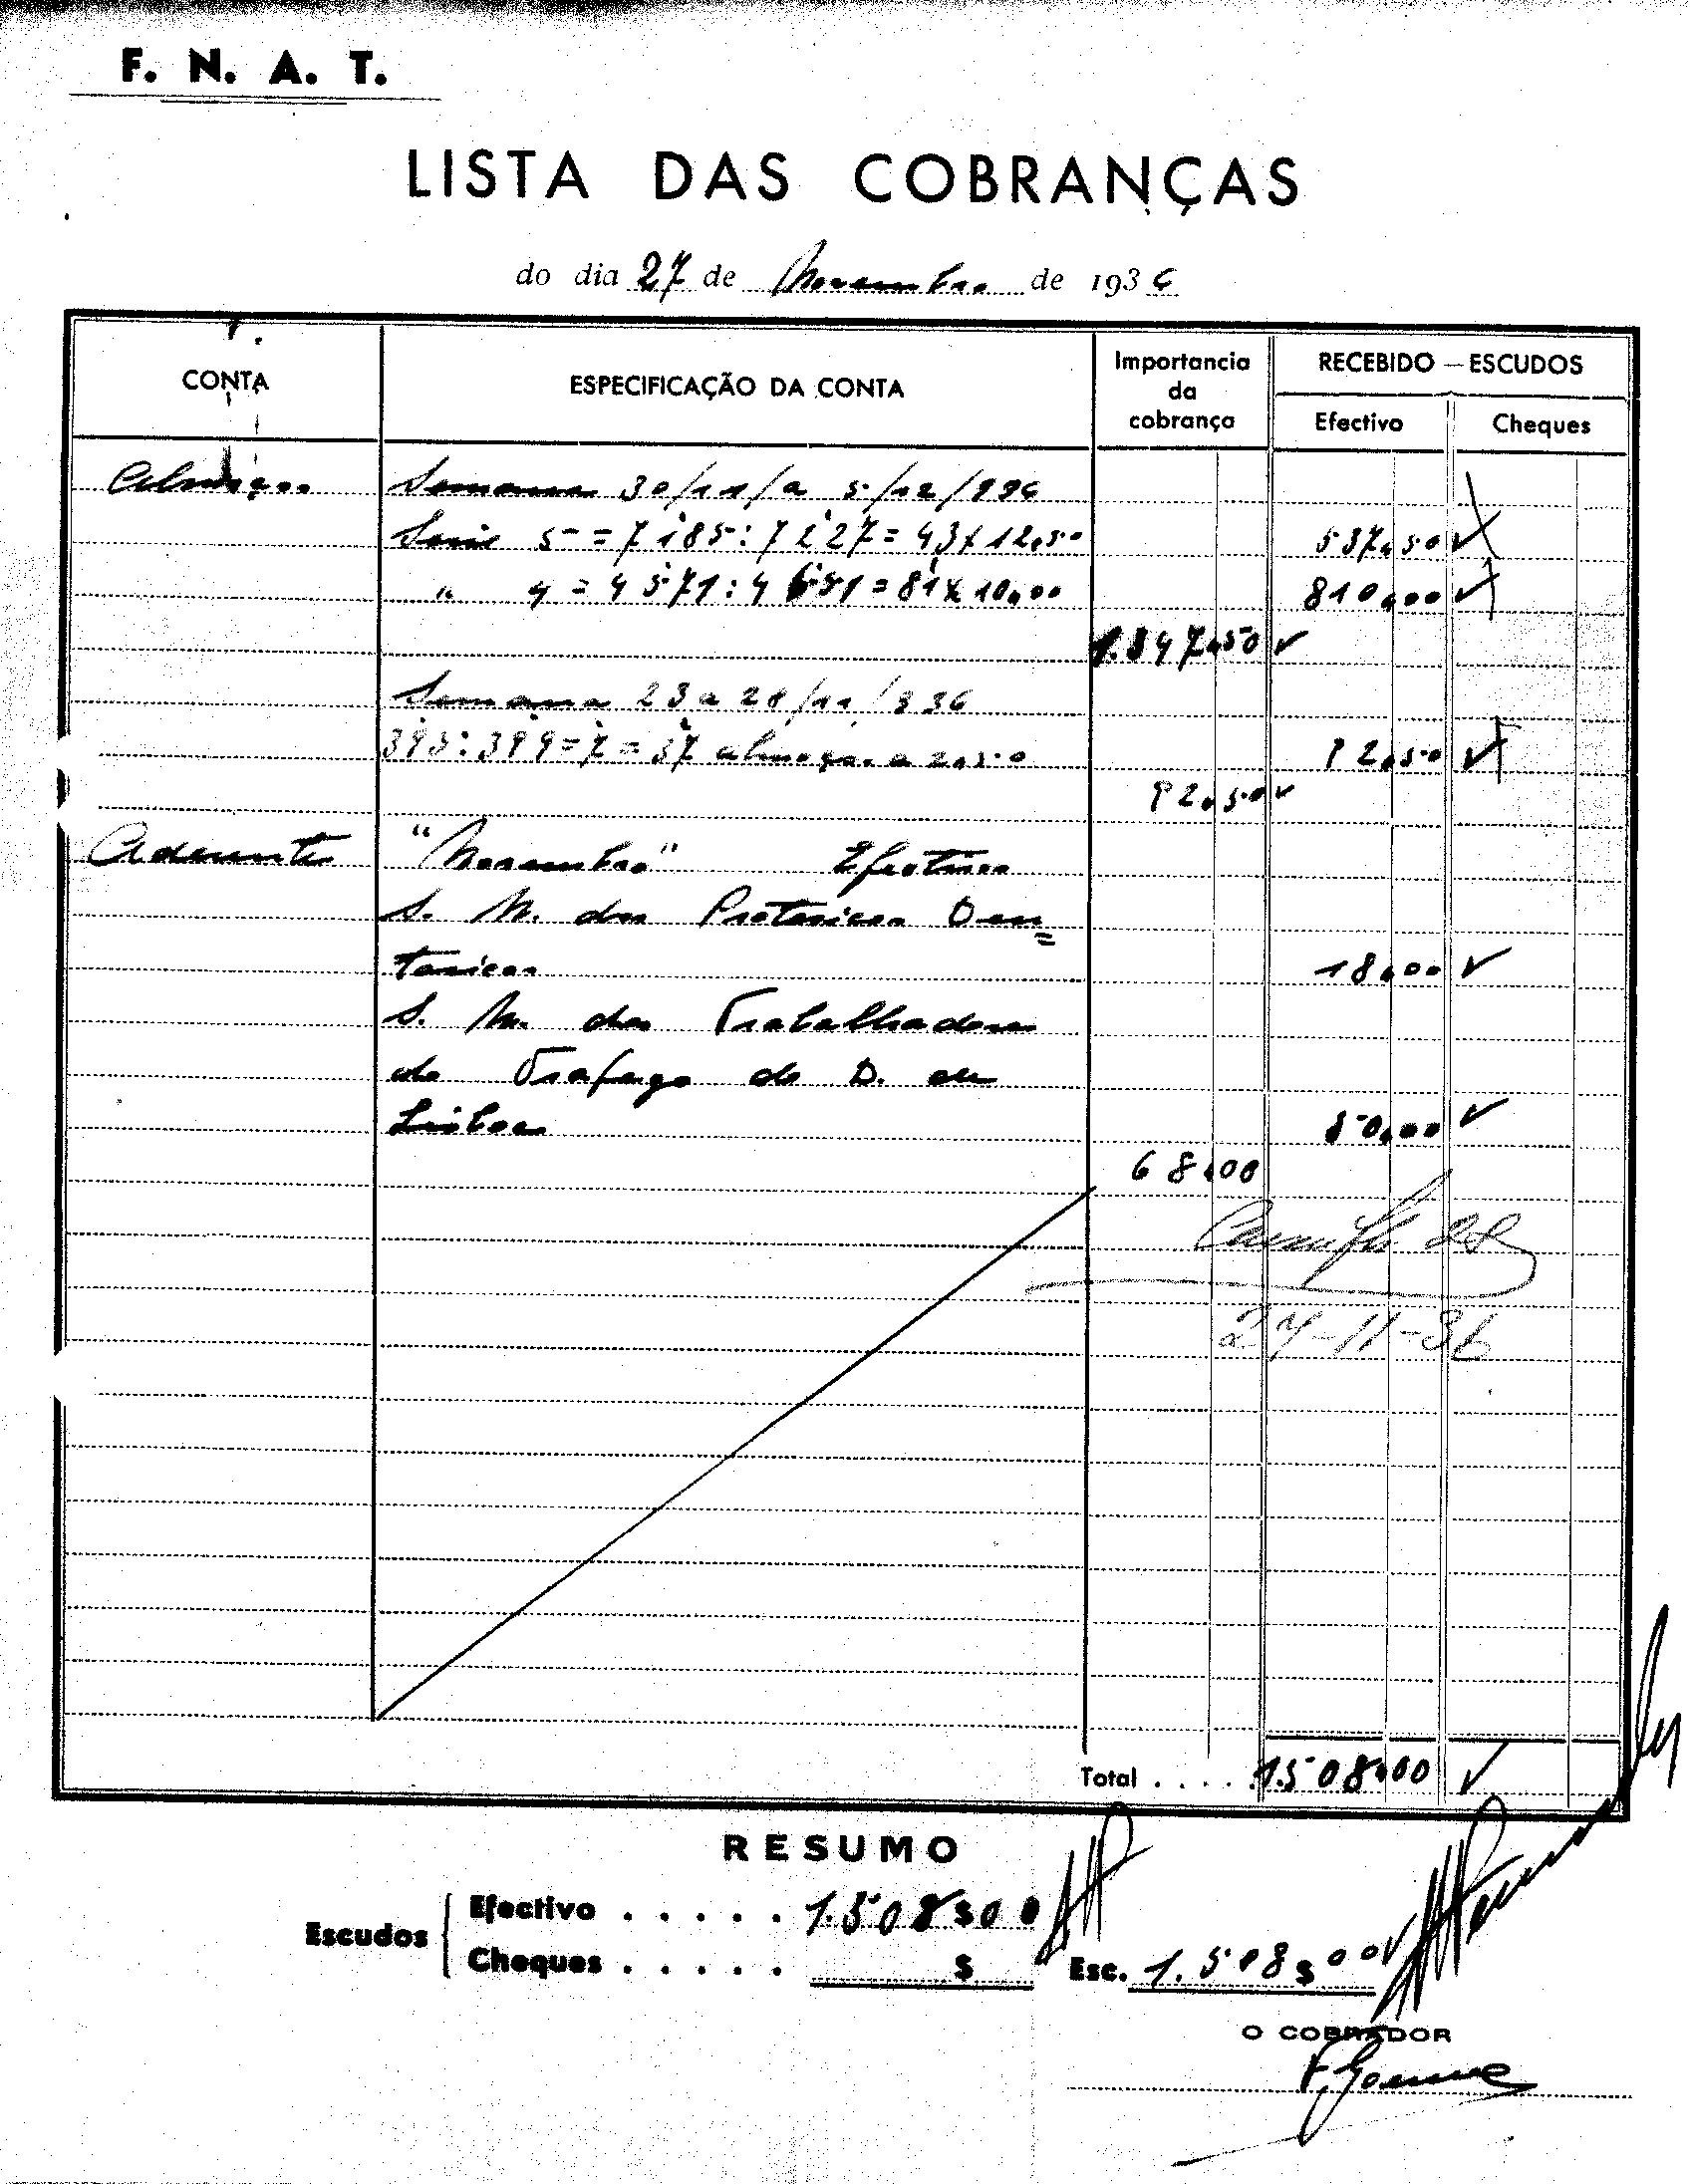 F. N. A. T.
LISTA DAS COBRANÇAS
do dia 27 de Novembro de 1936
CONTA
ESPECIFICAÇÃO DA CONTA
Importancia da cobrança
RECEBIDO — ESCUDOS
Efectivo
Cheques
Almoços Semana 30/11/a 5/12/936
Serie 5 = 7185:7227 = 43 x 12,50 537,50
" 4 = 4571:4651 = 81 x 10,00 810,00
1.347,50
Semana 23 a 28/11/936
= 37 almoços a 2,50 92,50
92,50
Aderente "Novembro" Efectivos
S. N. dos
18,00
S. N. dos Trabalhadores
do Trafego do P. de
Lisboa 50,00
68,00
27-11-36
Total .... 1.508,00
RESUMO
Escudos
Efectivo ..... 1.508$00
Cheques ..... $
Esc. 1.508$00
O COBRADOR
F. Gomes